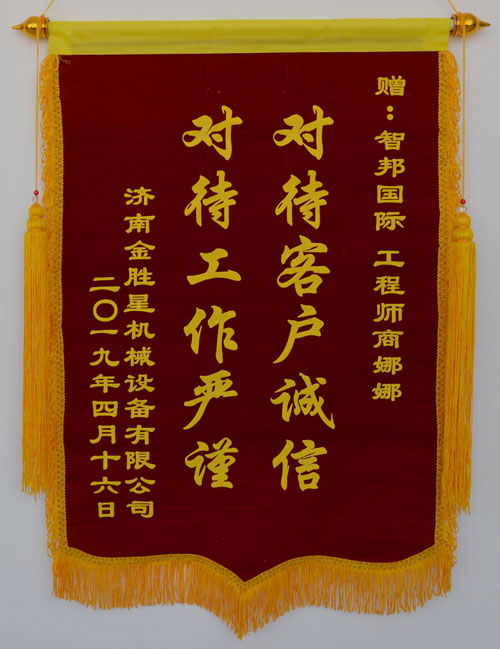 赠：智邦国际 工程师商娜娜
对待客户诚信
对待工作严谨
济南金胜星机械设备有限公司
二〇一九年四月十六日